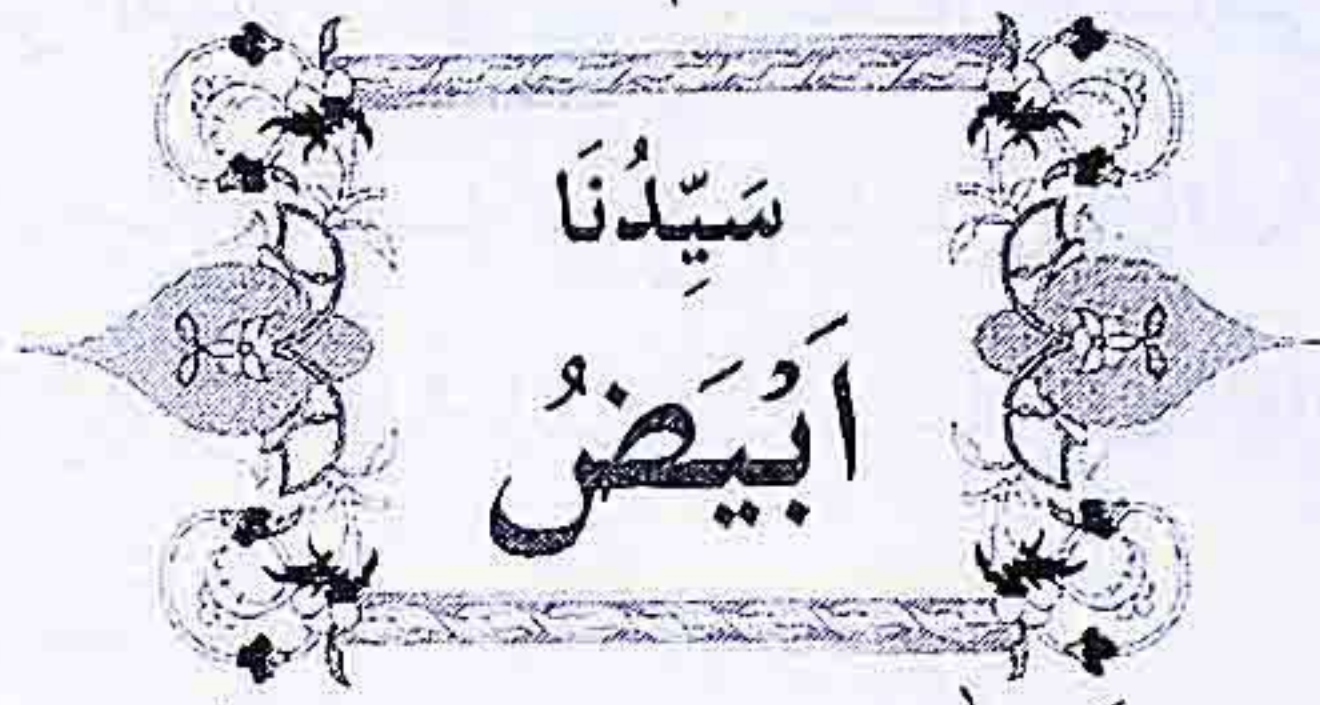 سَيِّدُنَا
اَبْيَضُ